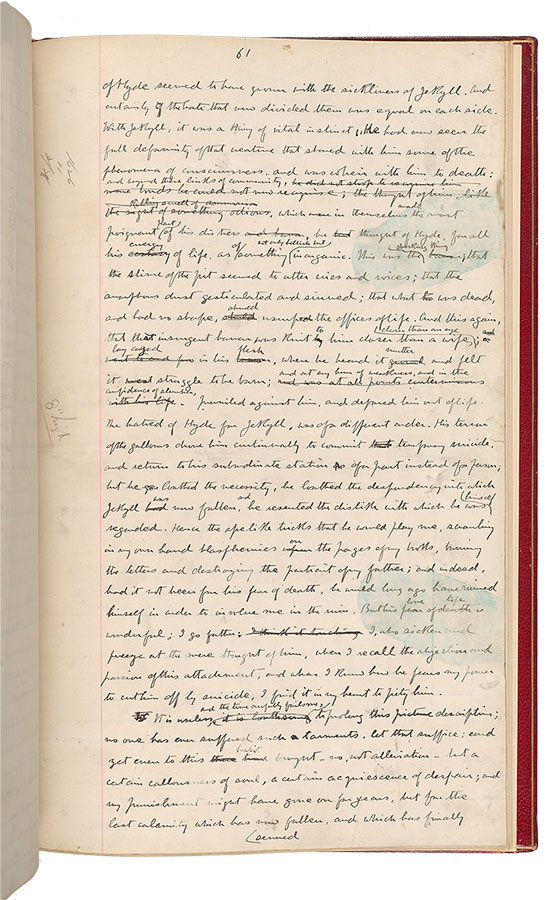 61
of Hyde seemed to have grown with the sickliness of Jekyll. And
certainly if the hate that now divided them was equal on each side.
With Jekyll, it was a thing of vital instinct. He had now seen the
full deformity of that creature that shared with him some of the
phenomena of consciousness, and was coheir with him to death:
and beyond these links of community, he did not stoop to recognise him
more bonds he could not now recognise; the thought of him, like
the sight of something odious, which were in themselves made the most
poignant part of his distress, he thought of Hyde, for all
his energy of life, as of something not only hellish but inorganic. This was the shocking thing; that
the slime of the pit seemed to utter cries and voices; that the
amorphous dust gesticulated and sinned; that what was dead,
and had no shape, should usurp the offices of life. And this again,
that that insurgent horror was knit to him closer than a wife, closer than an eye;
lay caged in his flesh, where he heard it mutter and felt
it struggle to be born; and at any hour of weakness, and in the
confidence of slumber,
with his life. prevailed against him, and deposed him out of life.
The hatred of Hyde for Jekyll, was of a different order. His terror
of the gallows drove him continually to commit temporary suicide,
and return to his subordinate station of a part instead of a person;
but he loathed the necessity, he loathed the despondency into which
Jekyll was now fallen, and he resented the dislike with which he was himself
regarded. Hence the apelike tricks that he would play me, scrawling
in my own hand blasphemies on the pages of my books, burning
the letters and destroying the portrait of my father; and indeed,
had it not been for his fear of death, he would long ago have ruined
himself in order to involve me in the ruin. But his love of life is
wonderful; I go further: I think it touching I, who sicken and
freeze at the mere thought of him, when I recall the abjection and
passion of this attachment, and when I know how he fears my power
to cut him off by suicide, I find it in my heart to pity him.
and the time awfully fails me,
It is useless, it is loathsome to prolong this picture description;
no one has ever suffered such torments, let that suffice; and
yet even to this habit brought – no, not alleviation – but a
certain callousness of soul, a certain acquiescence of despair; and
my punishment might have gone on for years, but for the
last calamity which has now fallen, and which has finally
severed